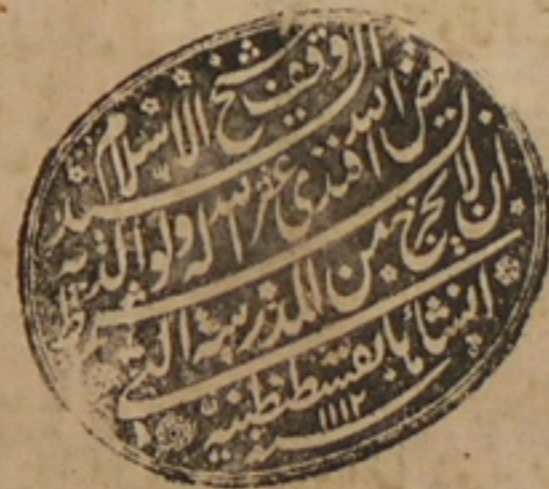 وقف شيخ الاسلام السيد
فيض الله افندي غفر الله له ولوالديه بشرط
ان لا يخرج من المدرسة التي
انشأها بقسطنطينية
سنة ١١١٢